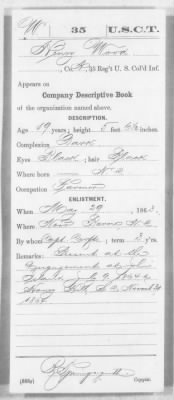 W 35 U.S.C.T.
Henry Wood
, Co. A, 35 Reg't U. S. Col'd Inf.
Appears on
Company Descriptive Book
of the organization named above.
DESCRIPTION.
Age 19 years; height 5 feet inches.
Complexion Dark
Eyes Black; hair Black
Where born N C
Occupation Farmer
ENLISTMENT.
When May 29, 1863.
Where New Berne, N.C
By whom Capt. ; term 3 y'rs.
Remarks: Present at the
Engagement at
July 9, 1864 &
Honey Hill, S.C, November 30
1864
Copyist.